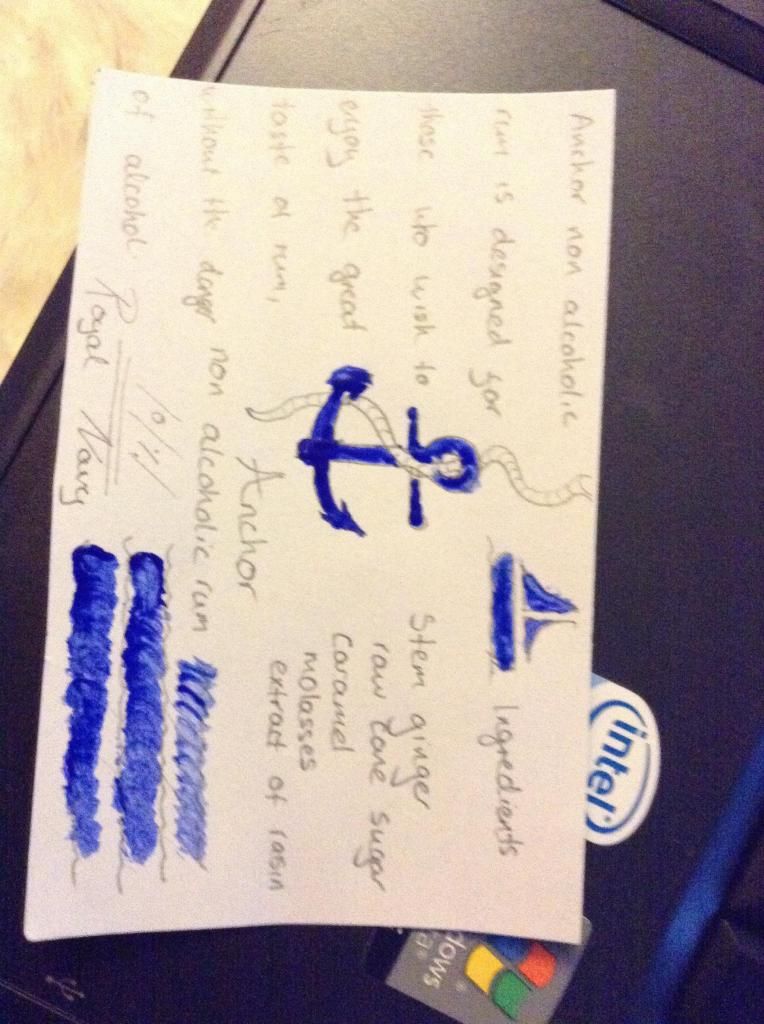 Anchor non alcoholic
rum is designed for
those who wish to
enjoy the great
taste of rum,
without the danger
of alcohol
Anchor
non alcoholic rum
0%
Royal Navy
Ingredients
Stem ginger
raw cane sugar
caramel
molasses
extract of rasin
intel
dows